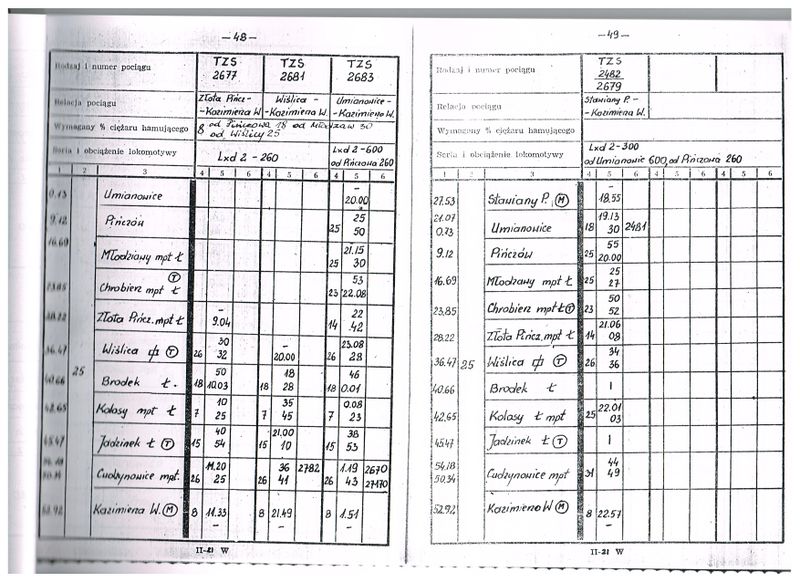 —48—
Rodzaj i numer pociągu TZS 2677 TZS 2681 TZS 2683
Relacja pociągu Złota Pińcz- -Kazimierza W. Wiślica - -Kazimierza W. Umianowice- -Kazimierza W.
Wymagany % ciężaru hamującego 8 od Pińczowa 18 od Młodzaw 30 od Wiślicy 25
Seria i obciążenie lokomotywy Lxd 2 - 260 Lxd 2 -600 od Pińczowa 260
1 2 3 4 5 6 4 5 6 4 5 6
Umianowice – 20.00
9.12 Pińczów 25 25 50
16.69 Młodziawy mpt Ł 25 21.15 30
23.85 Chrobierz mpt Ł (T) 23 53 22.08
28.22 Złota Pińcz. mpt Ł – 9.04 14 22 42
36.47 Wiślica (T) 26 30 32 – 20.00 26 23.08 28
40.66 25 Brodek Ł. 18 50 10.03 18 18 28 18 46 0.01
42.65 Kolosy mpt Ł 7 10 25 7 35 45 7 0.08 23
45.47 Jadzinek Ł (T) 15 40 54 15 21.00 10 15 38 53
50.34 Cudzynowice mpt. 26 11.20 25 26 36 41 2782 26 1.19 43 2670
52.92 Kazimierza W. (M) 8 11.33 – 8 21.49 – 8 1.51 –
II-21 W
—49—
Rodzaj i numer pociągu TZS 2482 2679
Relacja pociągu Stawiany P.- -Kazimierza W.
Wymagany % ciężaru hamującego
Seria i obciążenie lokomotywy Lxd 2-300 od Umianowic 600, od Pińczowa 260
1 2 3 4 5 6 4 5 6 4 5 6
27.53 Stawiany P. (M) – 18.55
21.07 0.73 Umianowice 18 19.13 30 2481
9.12 Pińczów 25 55 20.00
16.69 Młodzawy mpt Ł 25 25 27
23,85 Chrobierz mpt Ł (T) 23 50 52
28.22 Złota Pińcz. mpt Ł 14 21.06 08
36.47 25 Wiślica (T) 26 34 36
40.66 Brodek Ł |
42,65 Kolosy Ł mpt 25 22.01 03
45.47 Jadzinek Ł (T) |
54,18 50.34 Cudzynowice mpt 31 44 49
52.92 Kazimierza W (M) 8 22.57 –
II-21 W